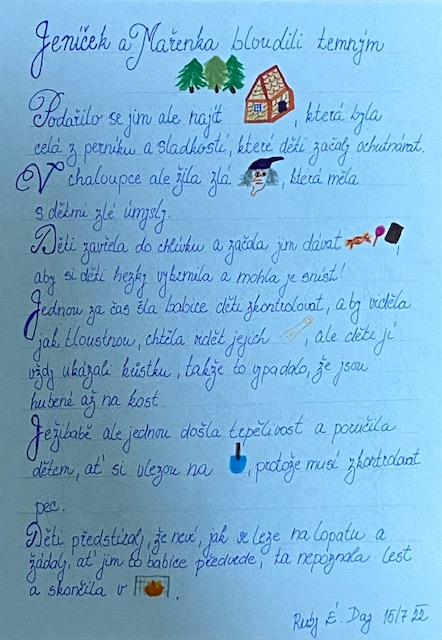 Jeníček a Mařenka bloudili temným
Podařilo se jim ale najít , která byla
celá z perníku a sladkostí, které děti začaly ochutnávat.
V chaloupce ale žila zlá , která měla
s dětmi zlé úmysly.
Děti zavřela do chlívku a začala jim dávat ,
aby si děti hezky vykrmila a mohla je sníst!
Jednou za čas šla babice děti zkontrolovat, aby viděla
jak tloustnou, chtěla vidět jejich , ale děti jí
vždy ukázali kůstku, takže to vypadalo, že jsou
hubené až na kost
Ježibabě ale jednou došla trpělivost a poručila
dětem, ať si vlezou na , protože musí zkontrolovat
pec.
Děti předstíraly, že neví, jak se leze na lopatu a
žádaly, ať jim to babice předvede, ta nepoznala lest
a skončila v .
Ruby É. Day 15/7 22